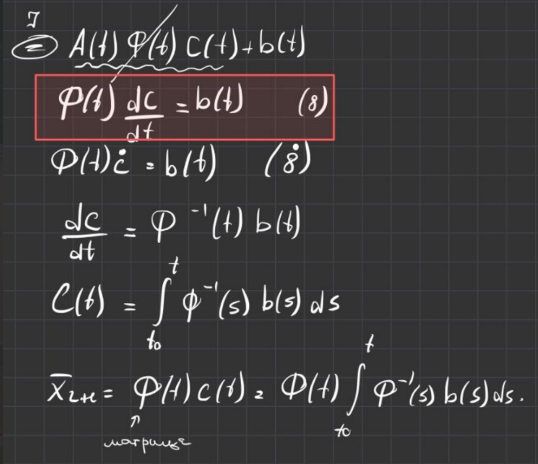 J
= A(t) Φ(t) C(t) + b(t)
Φ(t) dc/dt = b(t) (8)
Φ(t) ċ = b(t) (8̇)
dc/dt = Φ⁻¹(t) b(t)
C(t) = ∫ₜ₀ᵗ Φ⁻¹(s) b(s) ds
Φ(t) c(t) = Φ(t) ∫ₜ₀ᵗ Φ⁻¹(s) b(s) ds.
↑